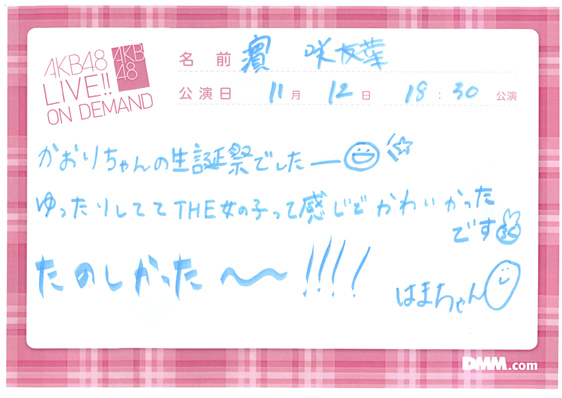 AKB48
LIVE!!
ON DEMAND
AKB
48
名前 濵 咲友葉
公演日 11月 12日 18:30 公演
かおりちゃんの生誕祭でしたー
ゆったりしててTHE女の子って感じでかわいかった
です
たのしかった〜〜!!!!
はまちゃん
DMM.com